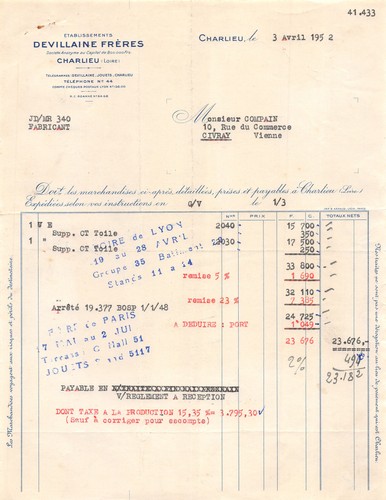 41.433
ÉTABLISSEMENTS
DEVILLAINE FRÈRES
Société Anonyme au Capital de
CHARLIEU (LOIRE)
TÉLÉGRAMMES: DEVILLAINE, JOUETS, CHARLIEU
TÉLÉPHONE Nº 44
CHARLIEU, le 3 Avril 1952
JD/MR 340
FABRICANT
Monsieur COMPAIN
10, Rue du Commerce
CIVRAY Vienne
Doit les marchandises ci-après détaillées, prises et payables à Charlieu (Loire)
Expédiées selon vos instructions en G/V le 1/3
Nos PRIX F. C. TOTAUX NETS
1 V E 2040 15 700
Supp. CT Toile 350
1 " 2030 17 500
Supp. CT Toile 250
33 800
remise 5 % 1 690
32 110
Arrêté 19.377 BOSP 1/1/48 remise 23 % 7 385
24 725
A DEDUIRE : PORT 1 049
23 676 23.676,-
2%
23.182
FOIRE de LYON
19 au 28 AVRIL
Groupe 35 Batiment
Stands 11 à 14
FOIRE de PARIS
17 MAI au 2 JUI
Terrasse C Hall 51
JOUETS Stand 5117
PAYABLE EN
V/REGLEMENT A RECEPTION
DONT TAXE A LA PRODUCTION 15,35 %= 3.795,30
(Sauf à corriger pour escompte)